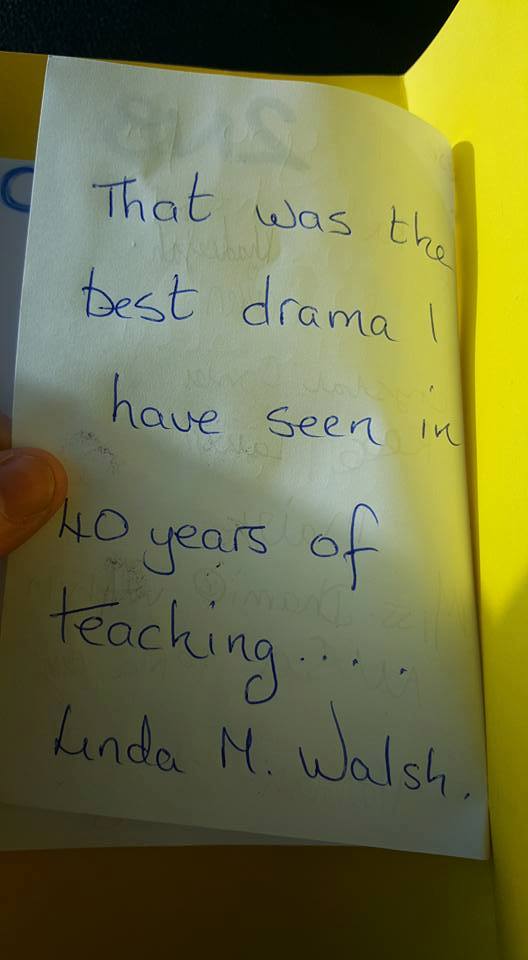 That was the
best drama I
have seen in
40 years of
teaching....
Linda M. Walsh.